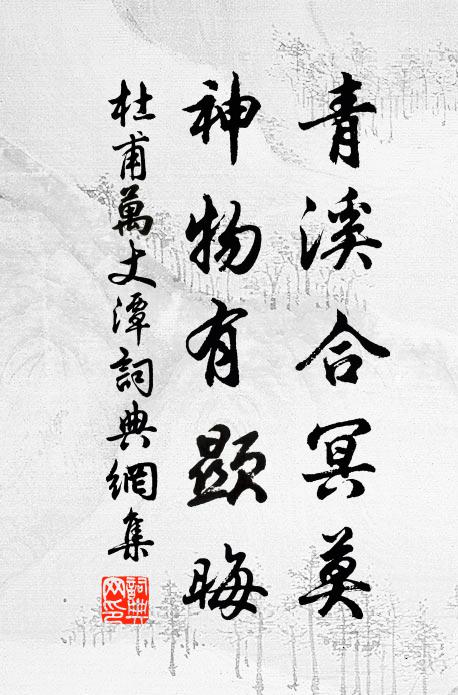 青溪合冥莫
神物有顯晦
杜甫萬丈潭詞典網集